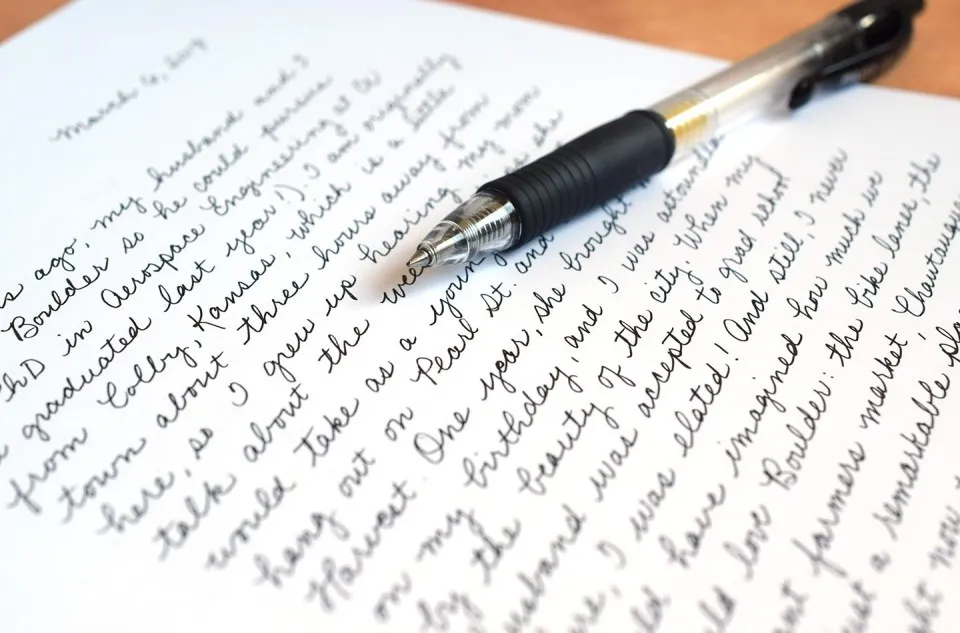 March
s ago, my husband and I
Boulder so he could pursue
PhD in Aerospace Engineering at
graduated last year!). I am originally
from Colby, Kansas, which is a little
town about three hours away from
here, so I grew up hearing my mom
talk about the she
would take as a young
hang out on Pearl St. and
Harvest. One year, she brought
on my birthday, and I was
by the beauty of the city. When my
husband was accepted to grad school
I was elated! And still, I never
have imagined how much we
love Boulder: the bike lanes, the
farmers market, Chautauqua
a remarkable
now